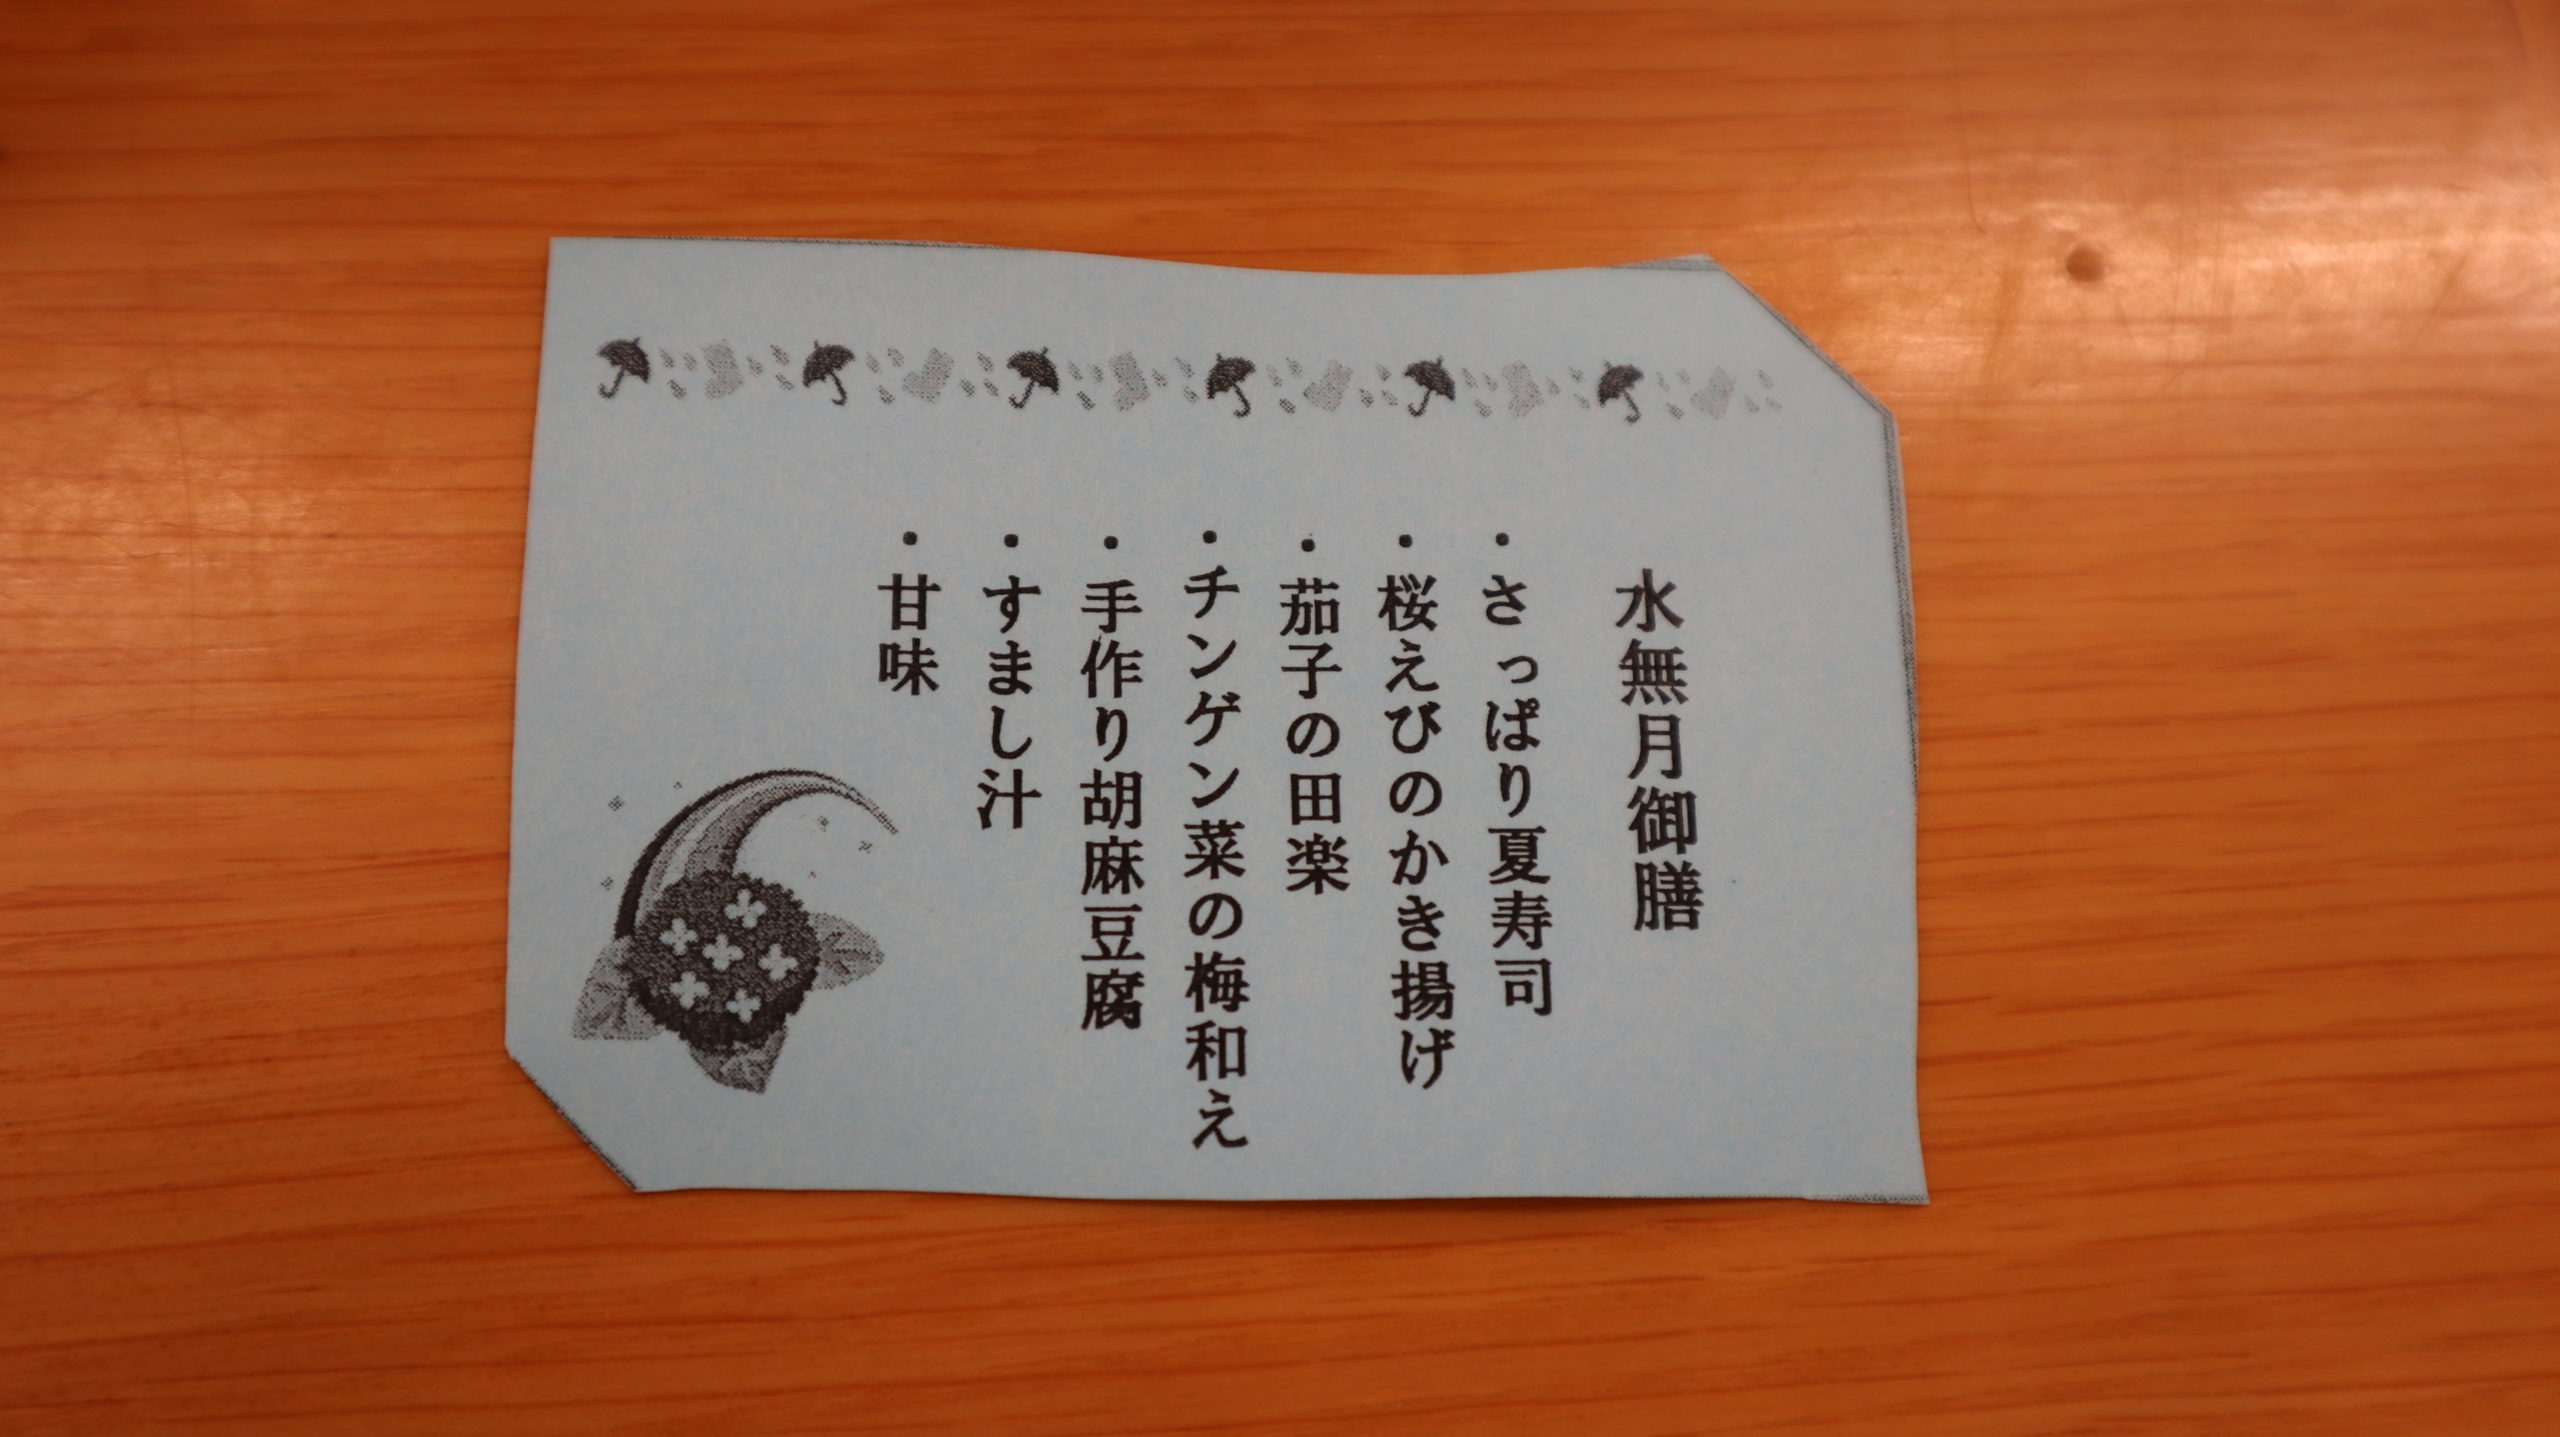 水無月御膳
・さっぱり夏寿司
・桜えびのかき揚げ
・茄子の田楽
・チンゲン菜の梅和え
・手作り胡麻豆腐
・すまし汁
・甘味